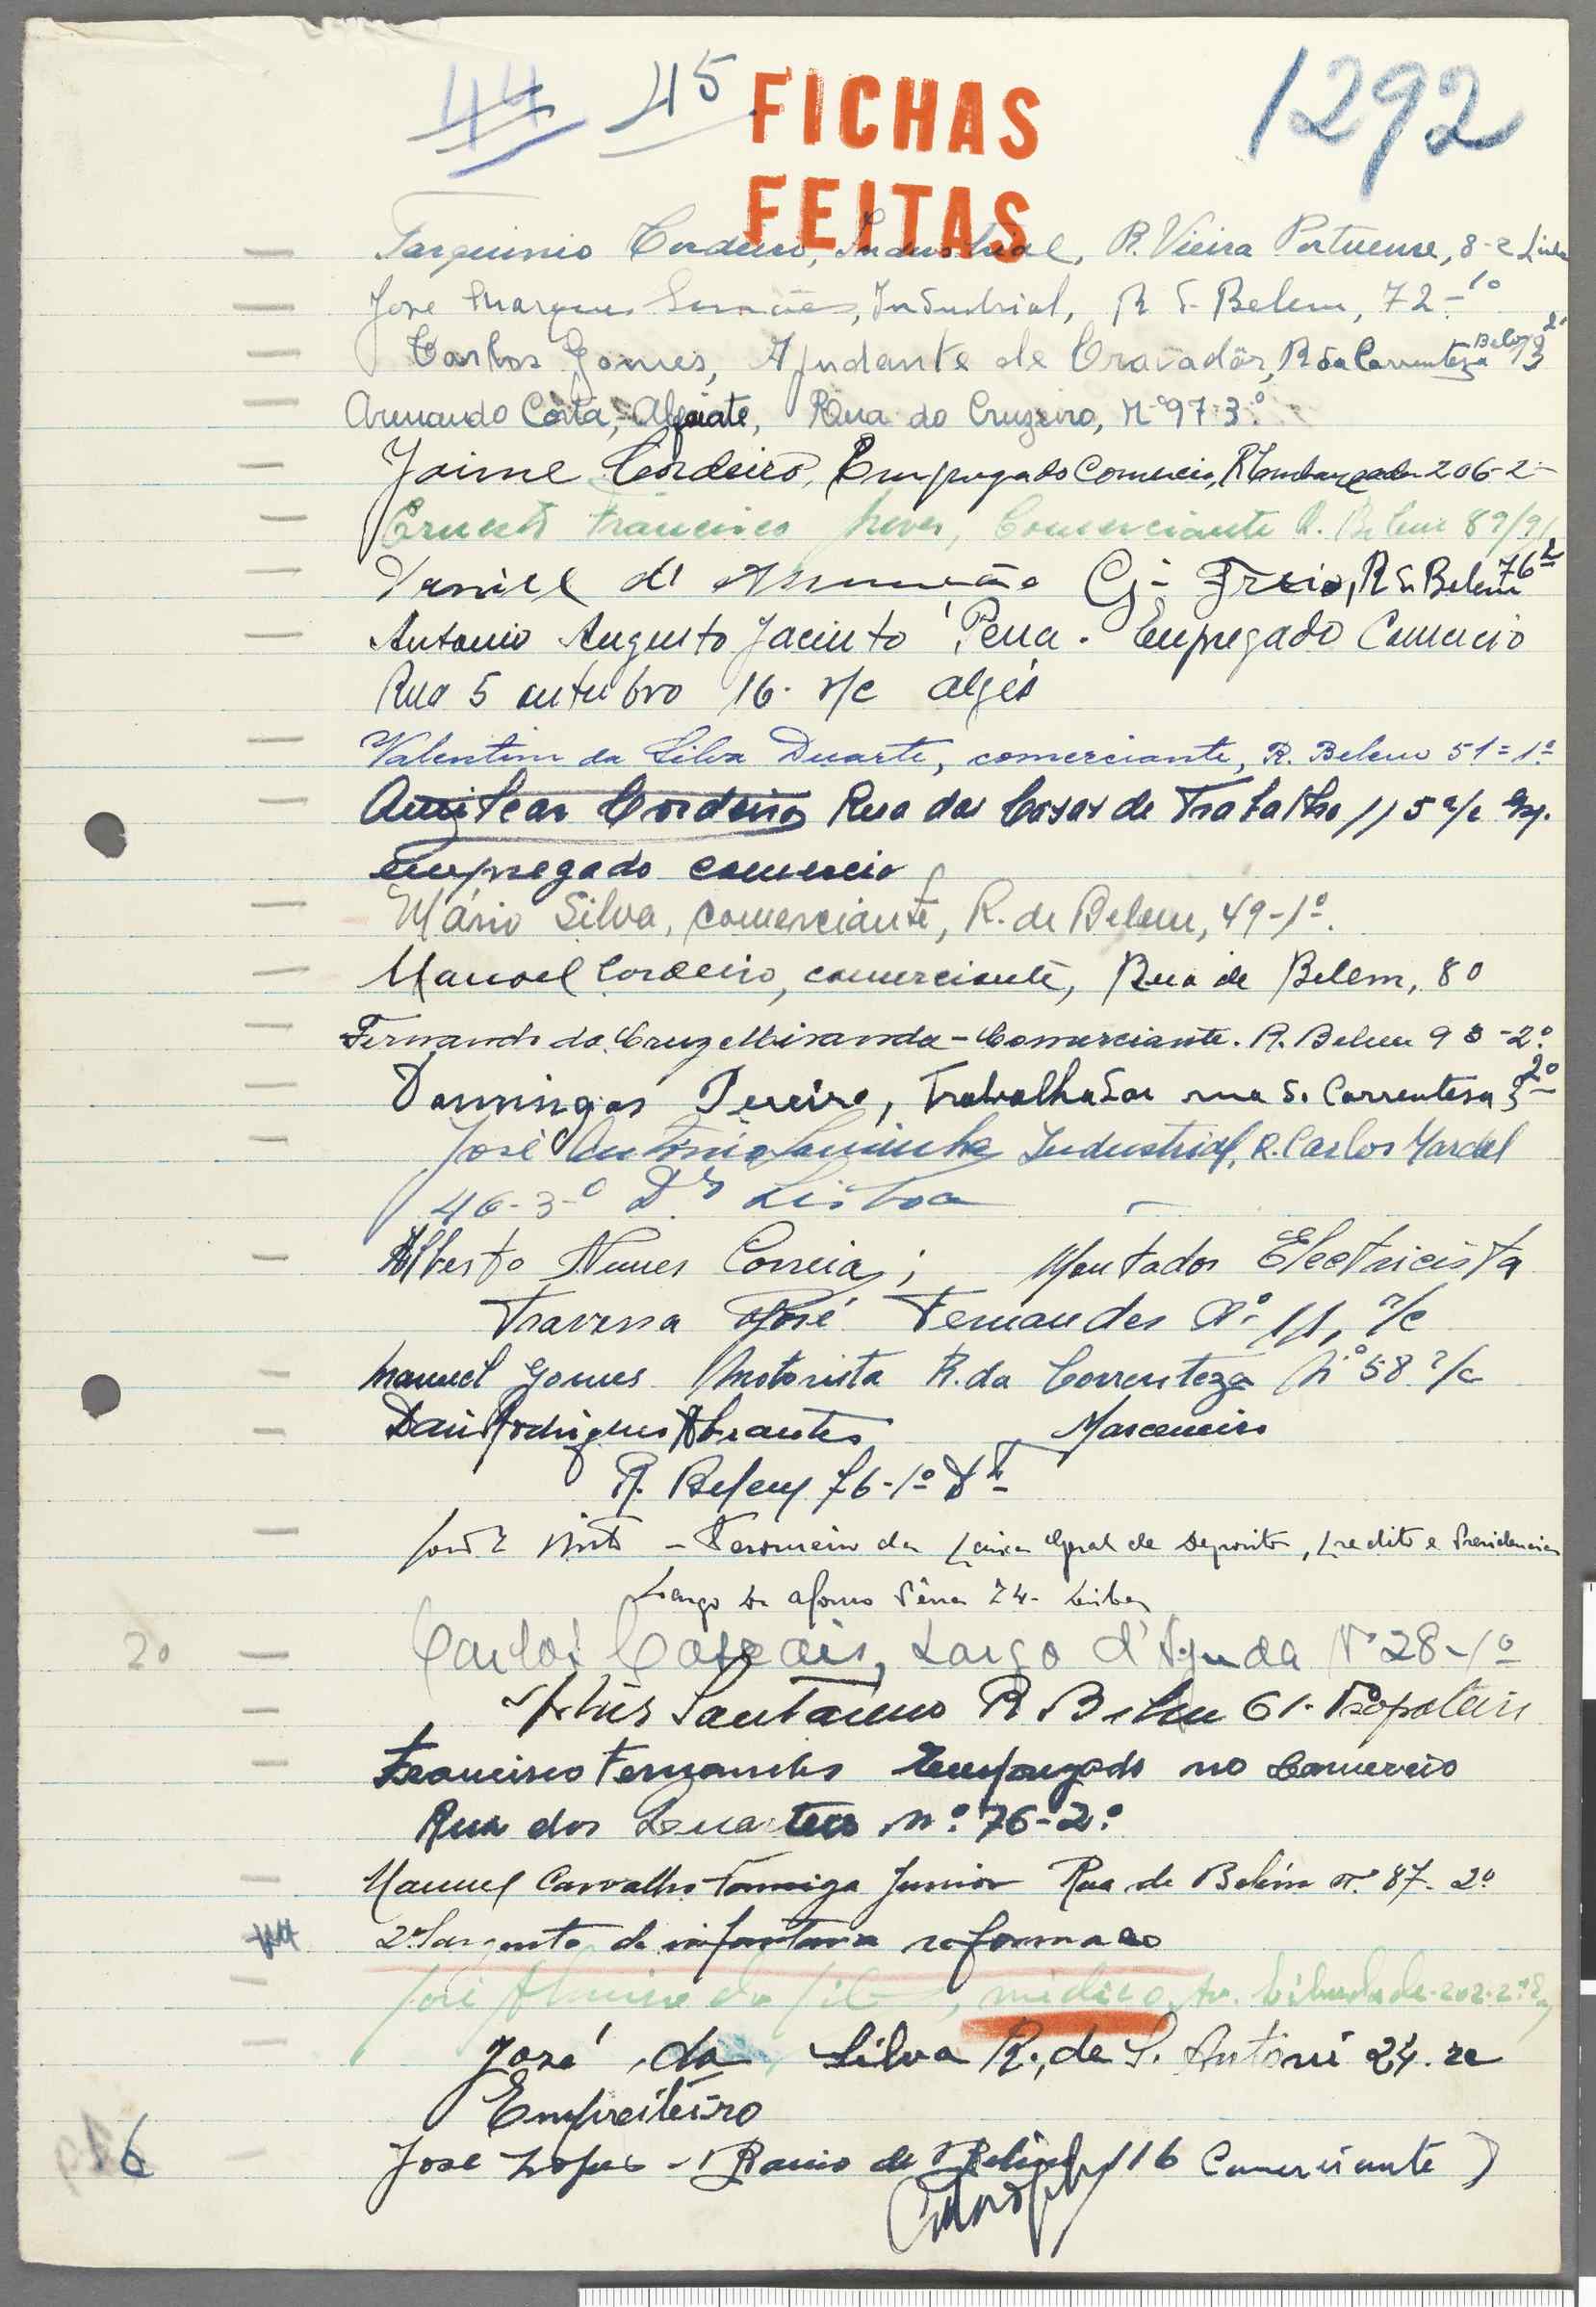 44 45 FICHAS 1292
FEITAS
Tarquinio Cordeiro, Industrial, R. Vieira Portuense, 8-2
Jose Marques Simões, Industrial, R. d. Belem, 72-1º
Carlos Gomes, Ajudante de Cravadôr, R da Correnteza Belem 13 2º
Armando Costa, Alfaiate, Rua do Cruzeiro, Nº 97-3º
Jaime Cordeiro, Empregado Comercio, R 206-2-
Ernesto Francisco Neves, Comerciante R. Belem 89/91
Daniel d' Assumção R d. Belem 76 2º
Antonio Augusto Jacinto Pena. Empregado Comercio
Rua 5 outubro 16. r/c algés
Valentim da Silva Duarte, comerciante, R. Belem 51=1º
Amilcar Cordeiro Rua das Casas de Trabalho 115 r/c
empregado comercio
Mário Silva, comerciante, R. de Belem, 49-1º.
Manoel Cordeiro, comerciante, Rua de Belem, 80
Fernando da Cruz Miranda - Comerciante. R. Belem 93-2º
Domingos Pereira, Trabalhador rua d. Correntesa 3 2º
José António Industrial, R. Carlos Mardel
46-3-º D.to Lisboa
Alberto Nunes Correia; Montador Electricista
Travessa José Fernandes Nº 11, r/c
Manuel Gomes Motorista R. da Correnteza Nº 58 r/c
David Rodrigues Abrantes Marceneiro
R. Belem 76-1º Dt
José Pinto - Tesoureiro da Caixa Geral de Depositos, Credito e Previdencia
Largo Dr Afonso Pena 24- Lisboa
20 Carlos Cascais, Largo d'Ajuda Nº 28-1º
Santanno R Belem 61-
Francisco Fernandes Empregado no Comercio
Rua dos nº 76-2º
Manuel Carvalho Formiga Junior Rua de Belém nº 87-2º
2º Sargento de infantaria reformado
José da Silva, médico, Av. Liberdade-202-2º
José da Silva R. de S. Antóni 24. rc
Empreiteiro
6 José Lopes - R de Belem 116 Comerciante